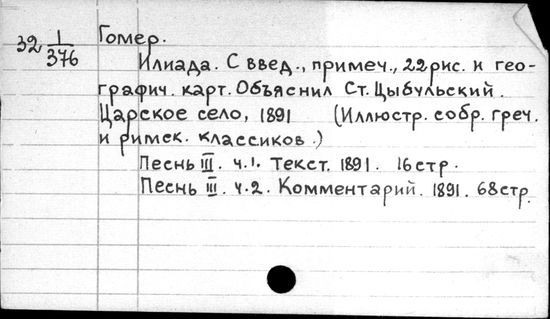 32 1/376 Гомер.
Илиада. С введ., примеч., 22 рис. и гео-
графич. карт. Объяснил Ст. Цыбульский.
Царское село, 1891 (Иллюстр. собр. греч.
и римск. классиков.)
Песнь III. ч.1. Текст. 1891. 16 стр.
Песнь III. ч.2. Комментарий. 1891. 68 стр.